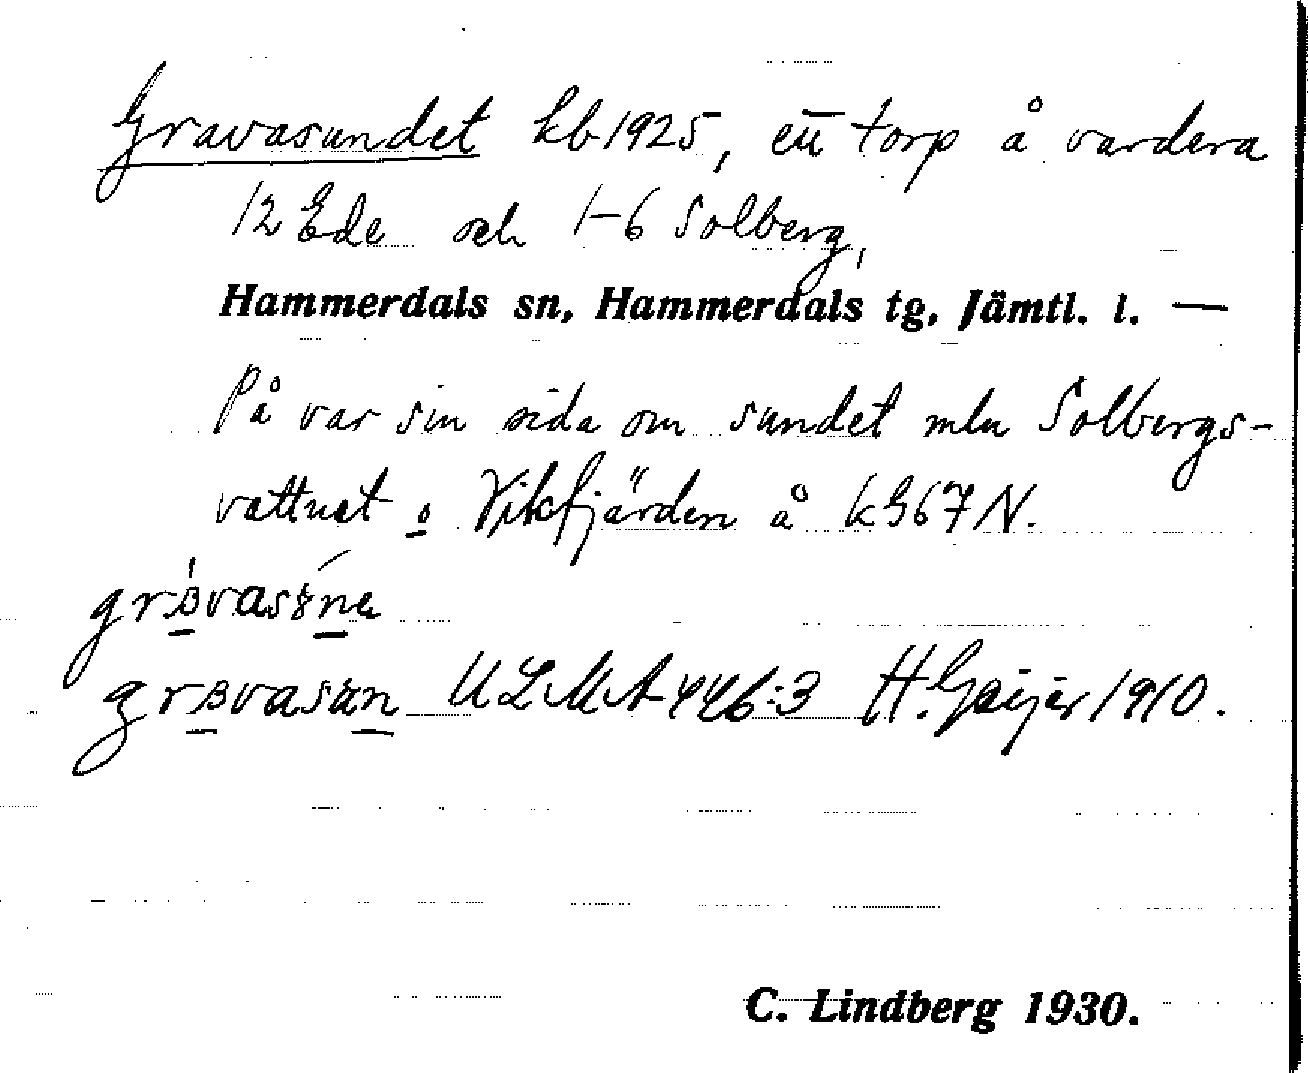 Gravasundet kb 1925, ett torp å vardera
12 Ede och 1-6 Solberg,
Hammerdals sn, Hammerdals tg, Jämtl. l. —
På var sin sida om sundet mln Solbergs-
vattnet o Vikfjärden å k G67 N.
ULMA 446:3 H. Geijer 1910.
C. Lindberg 1930.